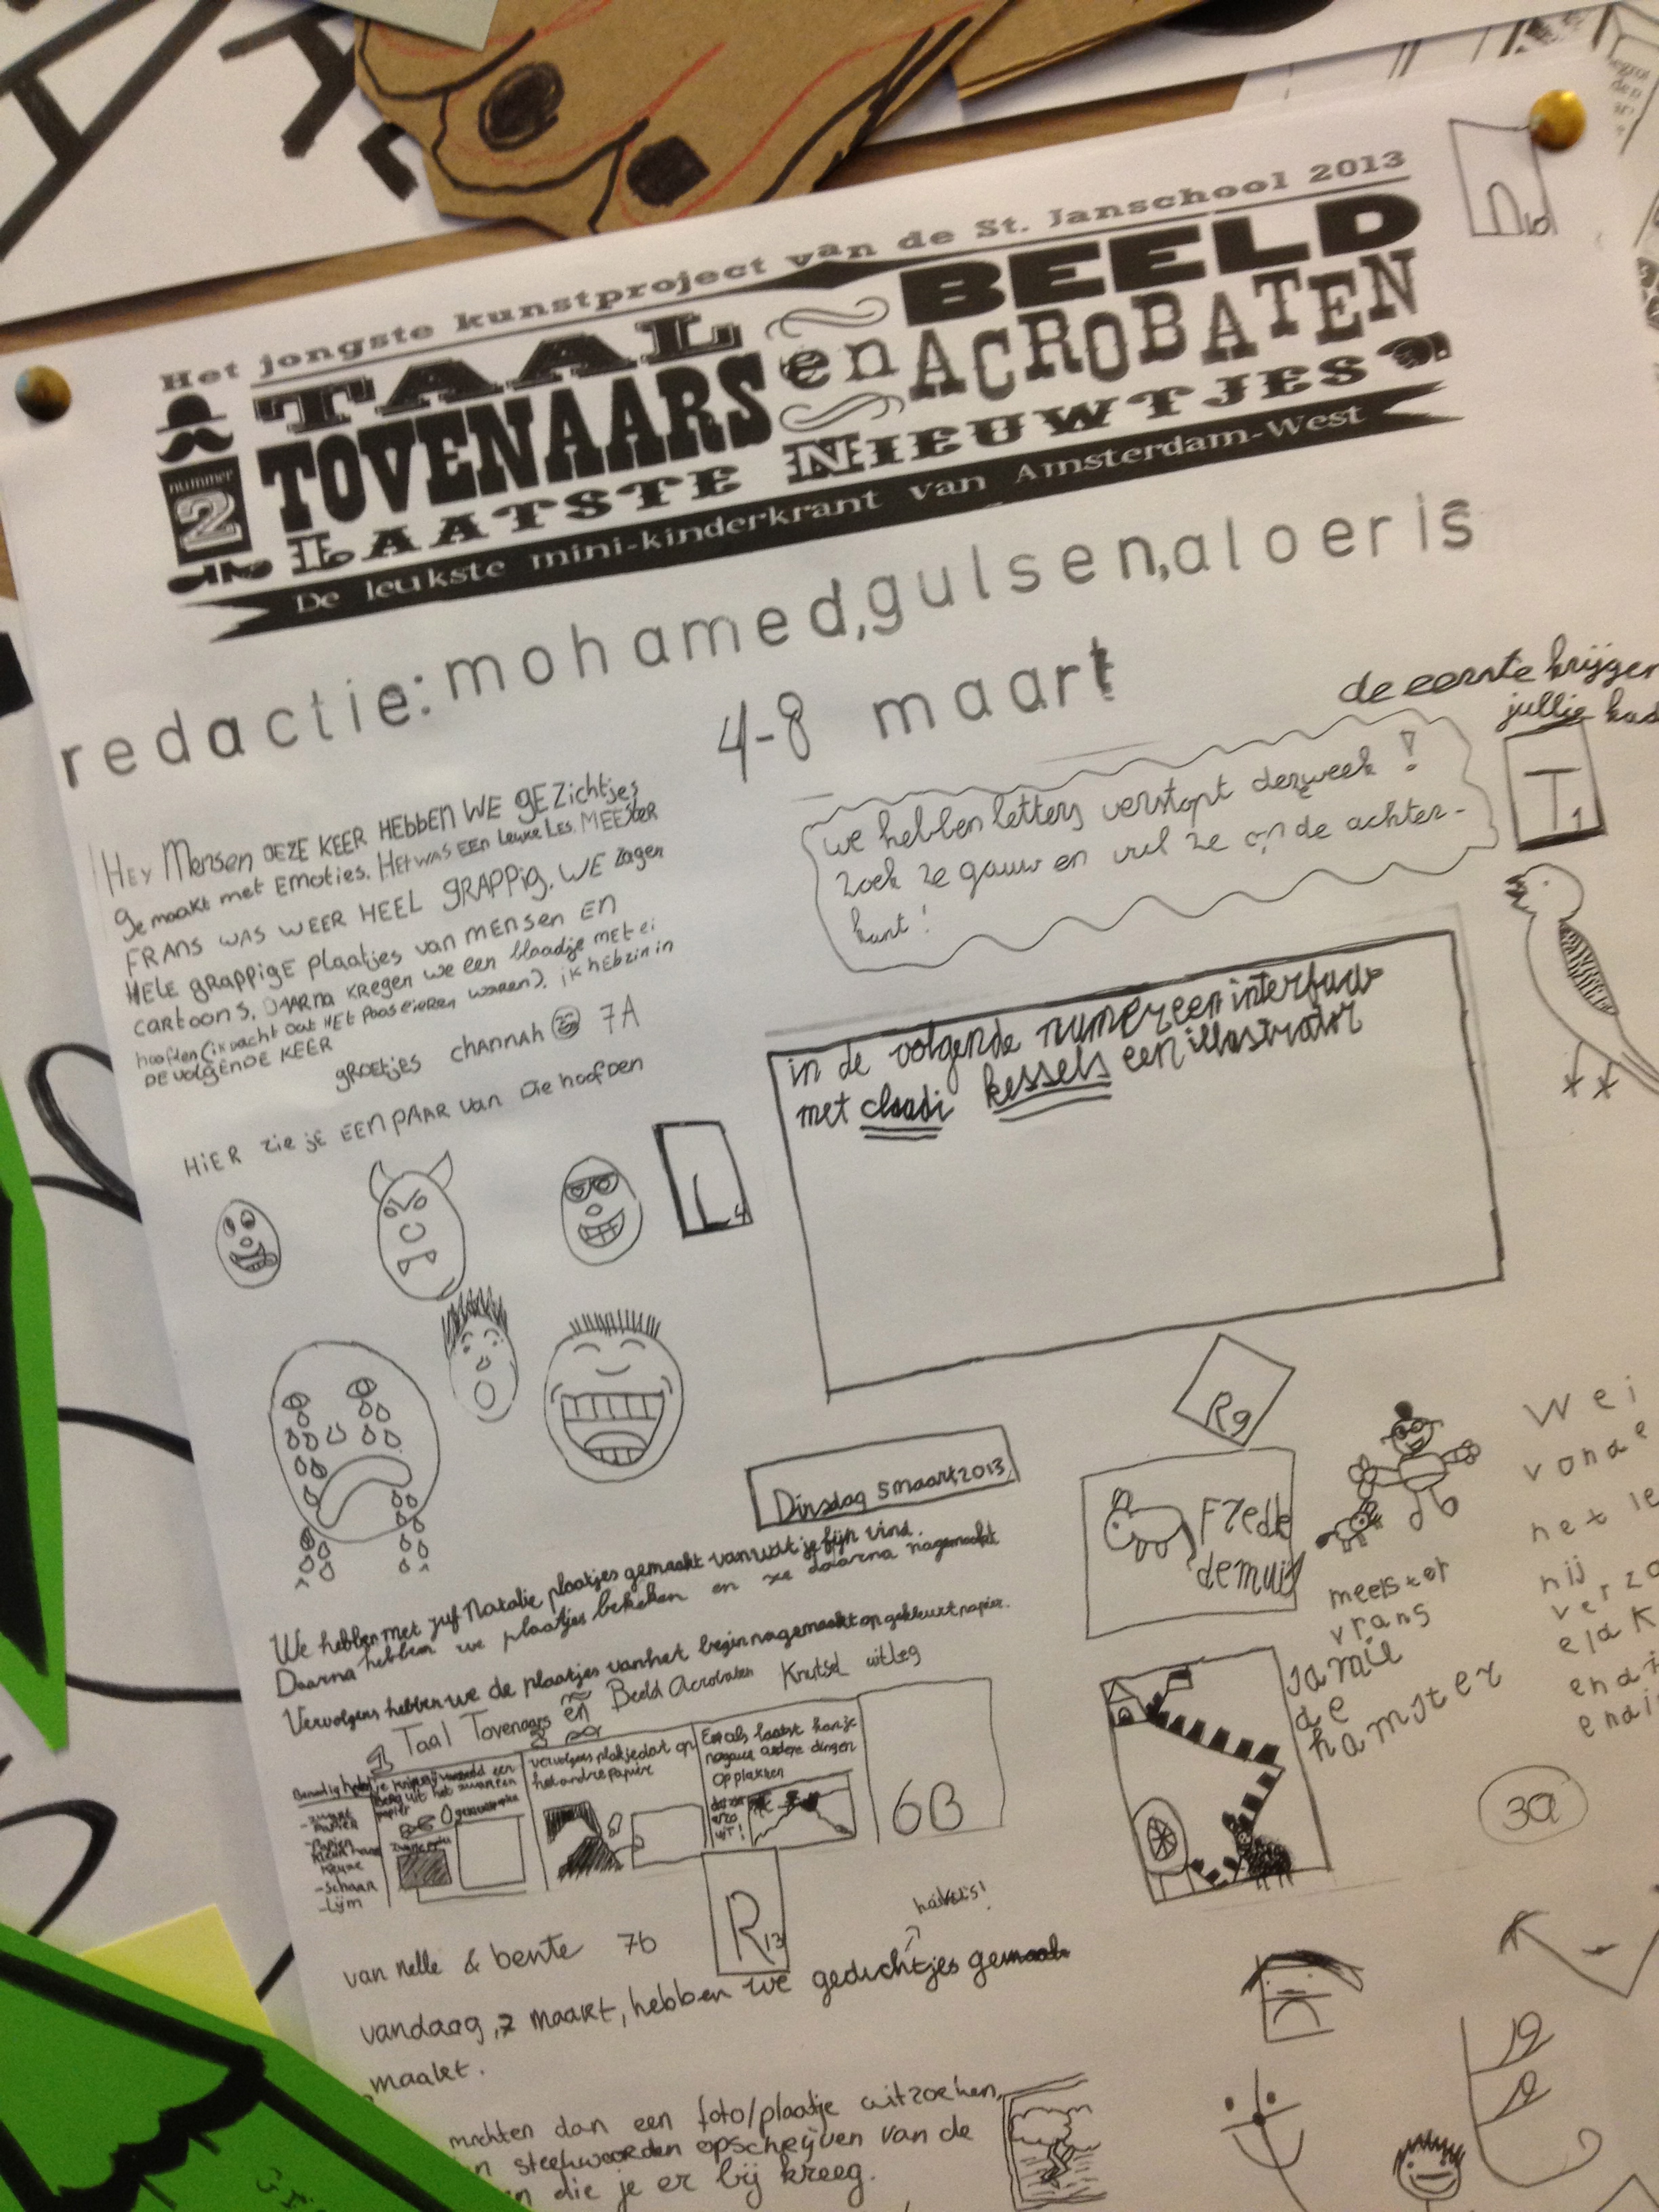 Het jongste kunstproject van de St. Janschool 2013
TAAL
TOVENAARS
en
BEELD
ACROBATEN
nummer
2
LAATSTE NIEUWTJES
De leukste mini-kinderkrant van Amsterdam-West
redactie: mohamed, gulsen, aloeris
4-8 maart
de eerste krijgen
jullie
T1
HEY Mensen DEZE KEER HEBBEN WE gEZichtjes
gemaakt met EMoties. HET WAS EEN Leuke Les. MEESter
FRANS WAS WEER HEEL gRAPPig. WE Zagen
HELE gRAPPigE plaatjes van mensen EN
cartoons. DAARna KREgen we een blaadje MET ei
hoofden (ik dacht dat HEt paaseieren waren). ik HEb zin in
DE VOLgENDE KEER
gROEtjes CHANNAH 7A
HiER zie jE EEN PAAR van Die hoofDen
L4
we hebben letters verstopt deze week!
zoek ze gauw en vul ze op de achter-
kant!
in de volgende numer een interfuw
met cloudi kessels een illustrator
R9
Dinsdag 5 maart, 2013
We hebben met juf Natalie plaatjes gemaakt van wat je fijn vind.
Daarna hebben we plaatjes bekeken en ze daarna nagemaakt
Vervolgens hebben we de plaatjes van het begin nagemaakt op gekleurt papier.
Taal Tovenaars en Beeld Acrobaten Knutsel uitleg
vervolgens plak je dat op
het andre papier
En als laatst kan je
nog andere dingen
op plakken
- zwart
papier
- Papier
- schaar
- Lijm
6B
Fredde
de muis
meester
vrans
Jamie
de
hamster
3a
R13
van nelle & bente 7b
haiku's!
vandaag, 7 maart, hebben we gedichtjes
maakt.
mochten dan een foto/plaatje uitzoeken,
steekwoorden opschrijven van de
die je er bij kreeg.